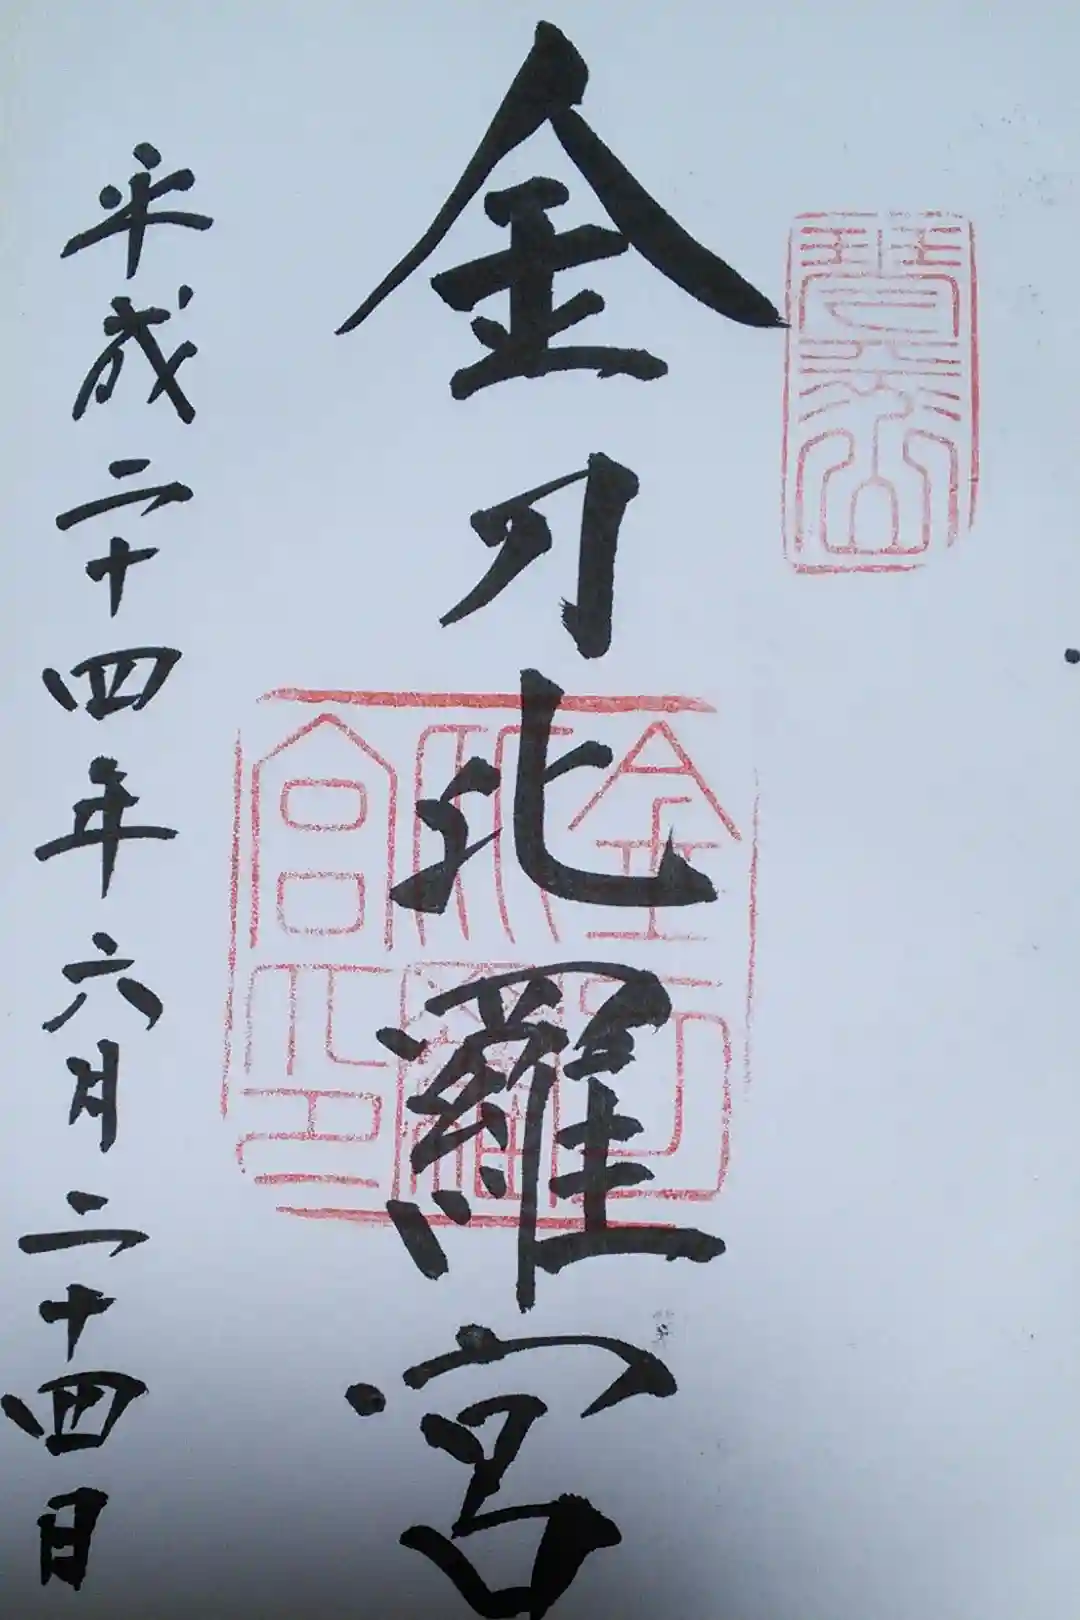 琴平山
金刀比羅宮
金刀
比羅
宮印
平成二十四年六月二十四日